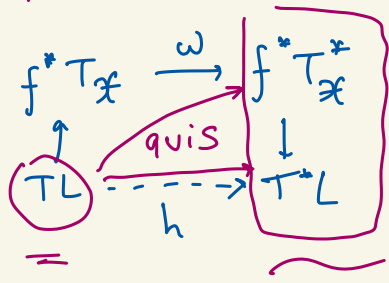 ω
f* T_𝔛 → f* T*_𝔛
quis
TL ⇢ T*L
h